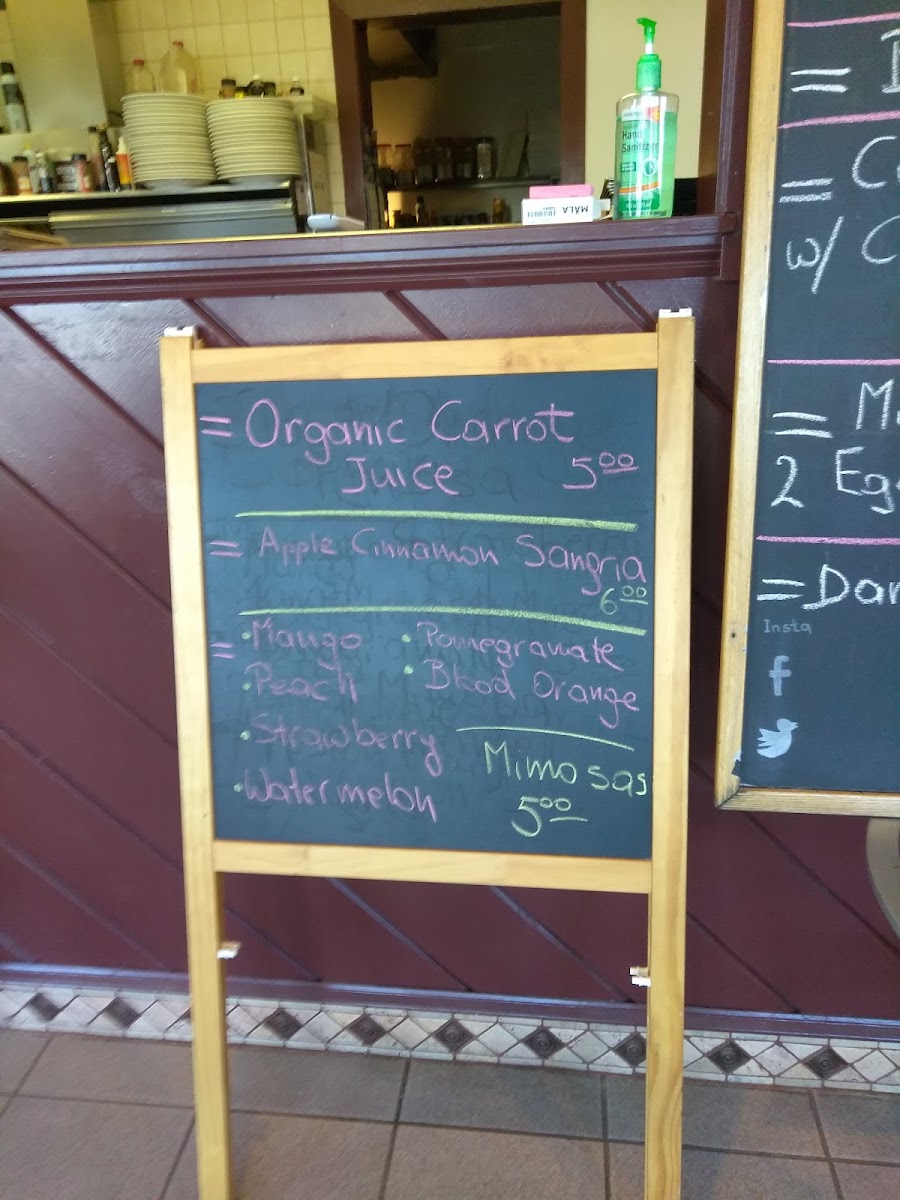 Hand
Sanitizer
MÅLA
= Organic Carrot
Juice 5.00
= Apple Cinnamon Sangria
6.00
= • Mango • Pomegranate
• Peach • Blood Orange
• Strawberry
• Watermelon
Mimosas
5.00
=
=
w/
=
2
=
Insta
f